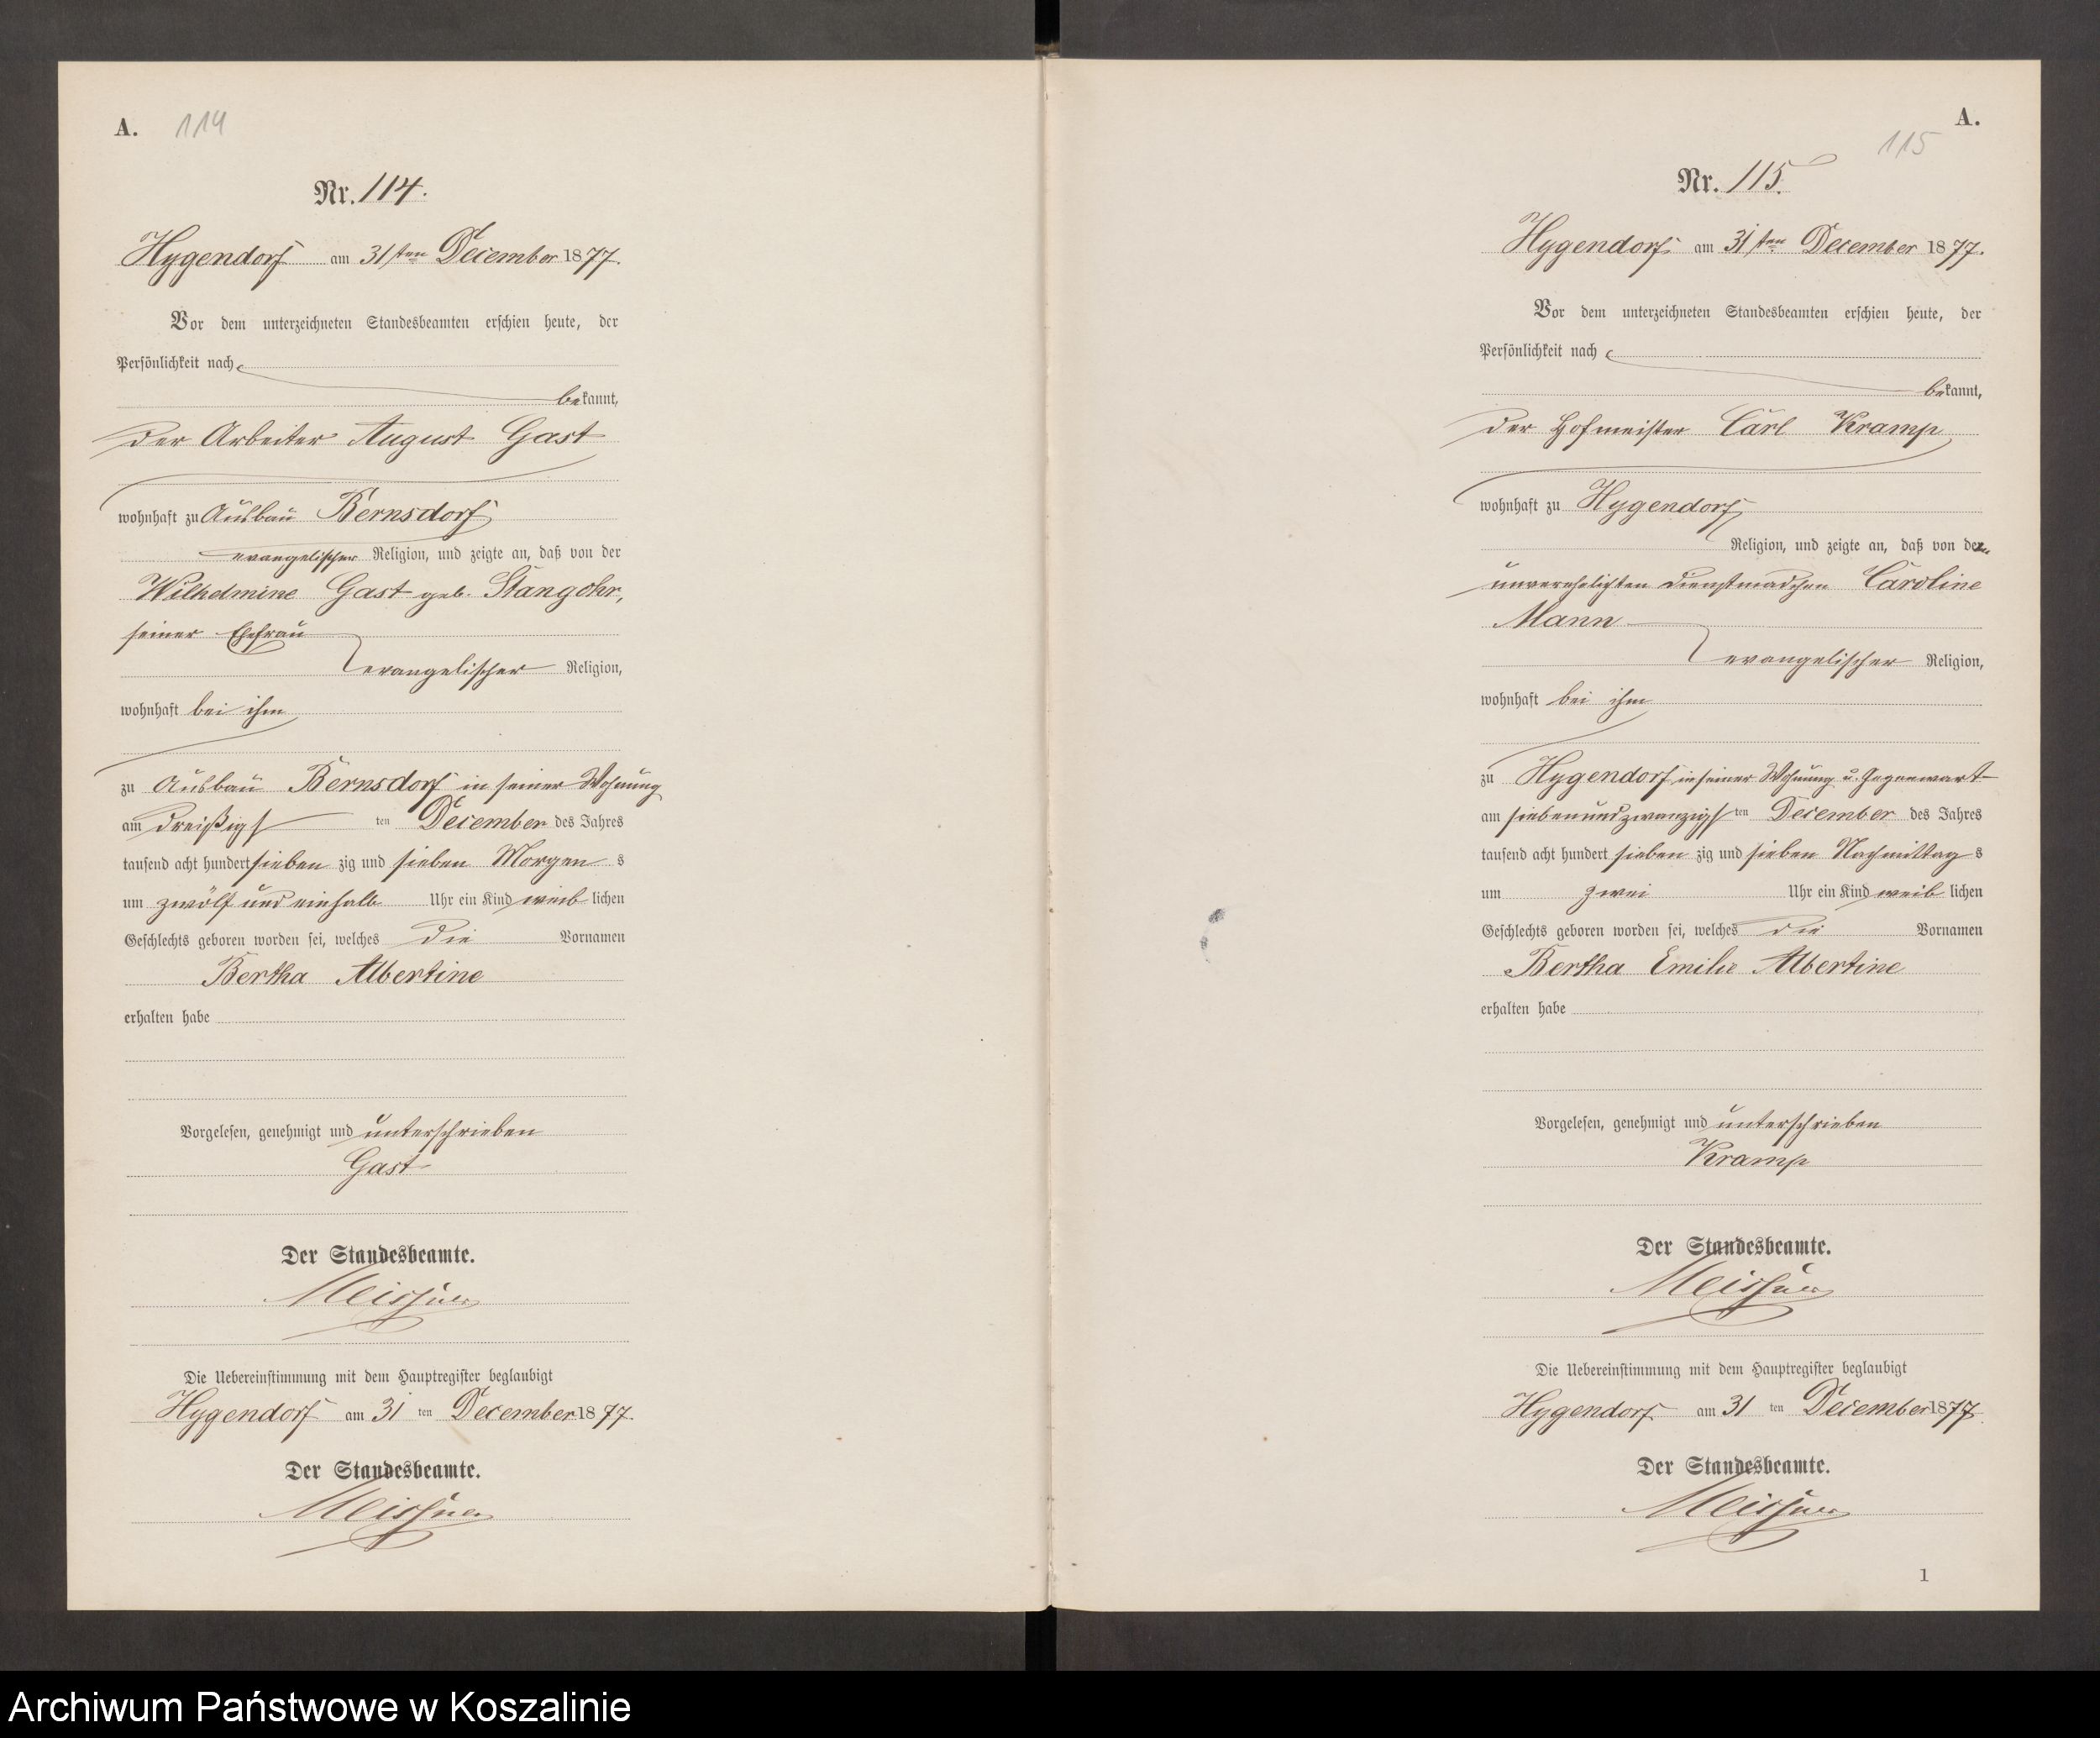 A. 114
Nr. 114.
Hygendorf am 31ten December 1877.
Vor dem unterzeichneten Standesbeamten erschien heute, der
Persönlichkeit nach
bekannt,
der Arbeiter August Gast
wohnhaft zu Ausbau Bernsdorf
evangelischer Religion, und zeigte an, daß von der
Wilhelmine Gast geb. Stangohr,
seiner Ehefrau
evangelischer Religion,
wohnhaft bei ihm
zu Ausbau Bernsdorf in seiner Wohnung
am dreißigsten December des Jahres
tausend acht hundert siebenzig und sieben Morgens
um zwölf und einhalb Uhr ein Kind weiblichen
Geschlechts geboren worden sei, welches die Vornamen
Bertha Albertine
erhalten habe
Vorgelesen, genehmigt und unterschrieben
Gast
Der Standesbeamte.
Meissner
Die Uebereinstimmung mit dem Hauptregister beglaubigt
Hygendorf am 31 ten December 1877.
Der Standesbeamte.
Meissner
A.
115
Nr. 115.
Hygendorf am 31ten December 1877.
Vor dem unterzeichneten Standesbeamten erschien heute, der
Persönlichkeit nach
bekannt,
der Hofmeister Carl Kramp
wohnhaft zu Hygendorf
Religion, und zeigte an, daß von der
unverehelichten Dienstmädchen Caroline
Mann
evangelischer Religion,
wohnhaft bei ihm
zu Hygendorf in seiner Wohnung u. Gegenwart
am siebenundzwanzigsten December des Jahres
tausend acht hundert siebenzig und sieben Nachmittags
um zwei Uhr ein Kind weiblichen
Geschlechts geboren worden sei, welches die Vornamen
Bertha Emilie Albertine
erhalten habe
Vorgelesen, genehmigt und unterschrieben
Kramp
Der Standesbeamte.
Meissner
Die Uebereinstimmung mit dem Hauptregister beglaubigt
Hygendorf am 31 ten December 1877.
Der Standesbeamte.
Meissner
1
Archiwum Państwowe w Koszalinie